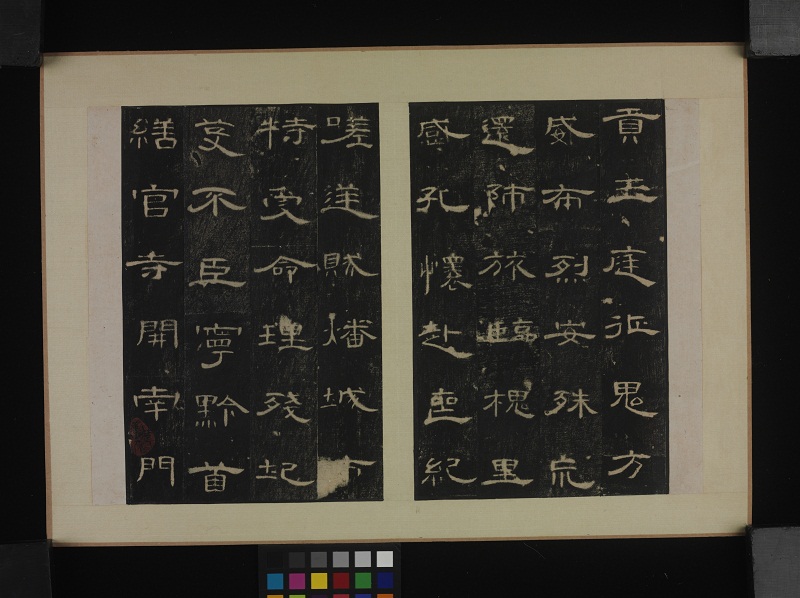 貢王庭征鬼方
威布烈安殊巟
還師旅臨槐里
感孔懷赴喪紀
嗟逆賊燔城市
特受命理殘圮
芟不臣寧黔首
繕官寺開南門